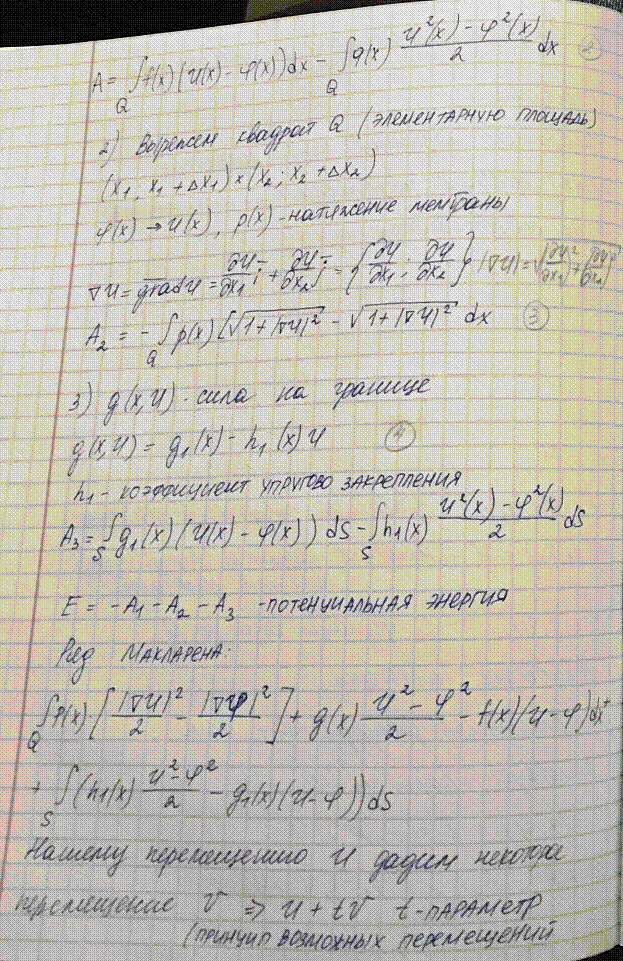 A = ∫_Q f(x)(u(x) - φ(x))dx - ∫_Q q(x) (u²(x) - φ²(x))/2 dx (2)
2) Вырежем квадрат Q (элементарную площадь)
(x₁, x₁ + Δx₁) × (x₂; x₂ + Δx₂)
φ(x) → u(x), p(x) - натяжение мембраны
∇u = grad u = ∂u/∂x₁ i + ∂u/∂x₂ j = {∂u/∂x₁; ∂u/∂x₂} |∇u| = √((∂u/∂x₁)² + (∂u/∂x₂)²)
A₂ = - ∫_Q p(x) [√(1+|∇u|²) - √(1+|∇u|²) dx (3)
3) g(x,u) - сила на границе
g(x,u) = g₁(x) - h₁(x)u (4)
h₁ - коэффициент упругово закрепления
A₃ = ∫_S g₁(x)(u(x) - φ(x)) dS - ∫_S h₁(x) (u²(x) - φ²(x))/2 dS
E = -A₁ - A₂ - A₃ - потенциальная энергия
Ряд Макларена:
∫_Q p(x)·[|∇u|²/2 - |∇φ|²/2] + q(x) (u² - φ²)/2 - f(x)(u - φ)dx +
+ ∫_S (h₁(x) (u² - φ²)/2 - g₁(x)(u - φ))dS
Нашему перемещению u дадим некоторое
перемещение v ⇒ u + tv t - параметр
(принцип возможных перемещений